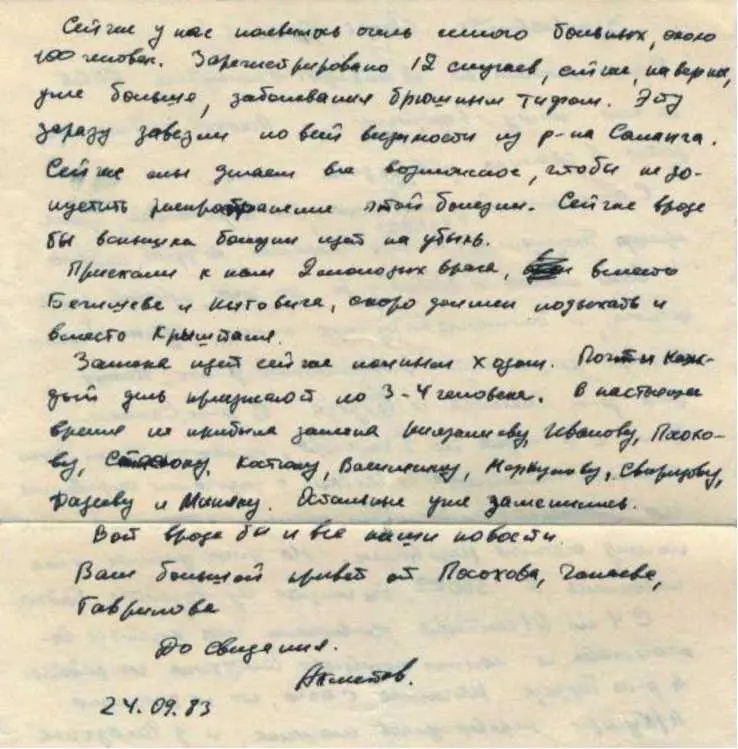 Сейчас у нас появилось очень много больных, около
100 человек. Зарегистрировано 12 случаев, сейчас, наверное,
уже больше, заболевания брюшным тифом. Эту
заразу завезли по всей видимости из р-на Саланга.
Сейчас мы делаем все возможное, чтобы не до-
пустить распространение этой болезни. Сейчас вроде
бы вспышка болезни идет на убыль.
Приехали к нам 2 молодых врача, вместо
Бегишева и Китовича, скоро должен подъехать и
вместо Крыштапя.
Замена идет сейчас полным ходом. Почти каж-
дый день приезжают по 3-4 человека. В настоящее
время не прибыла замена Иванову, Посохо-
ву, Костюку, Меркулову, Сварцову,
Фадееву и Маняку. Остальные уже заменились.
Вот вроде бы и все наши новости.
Вам большой привет от Посохова,
Гаврилова
До свидания.
Ахметов.
24.09.83